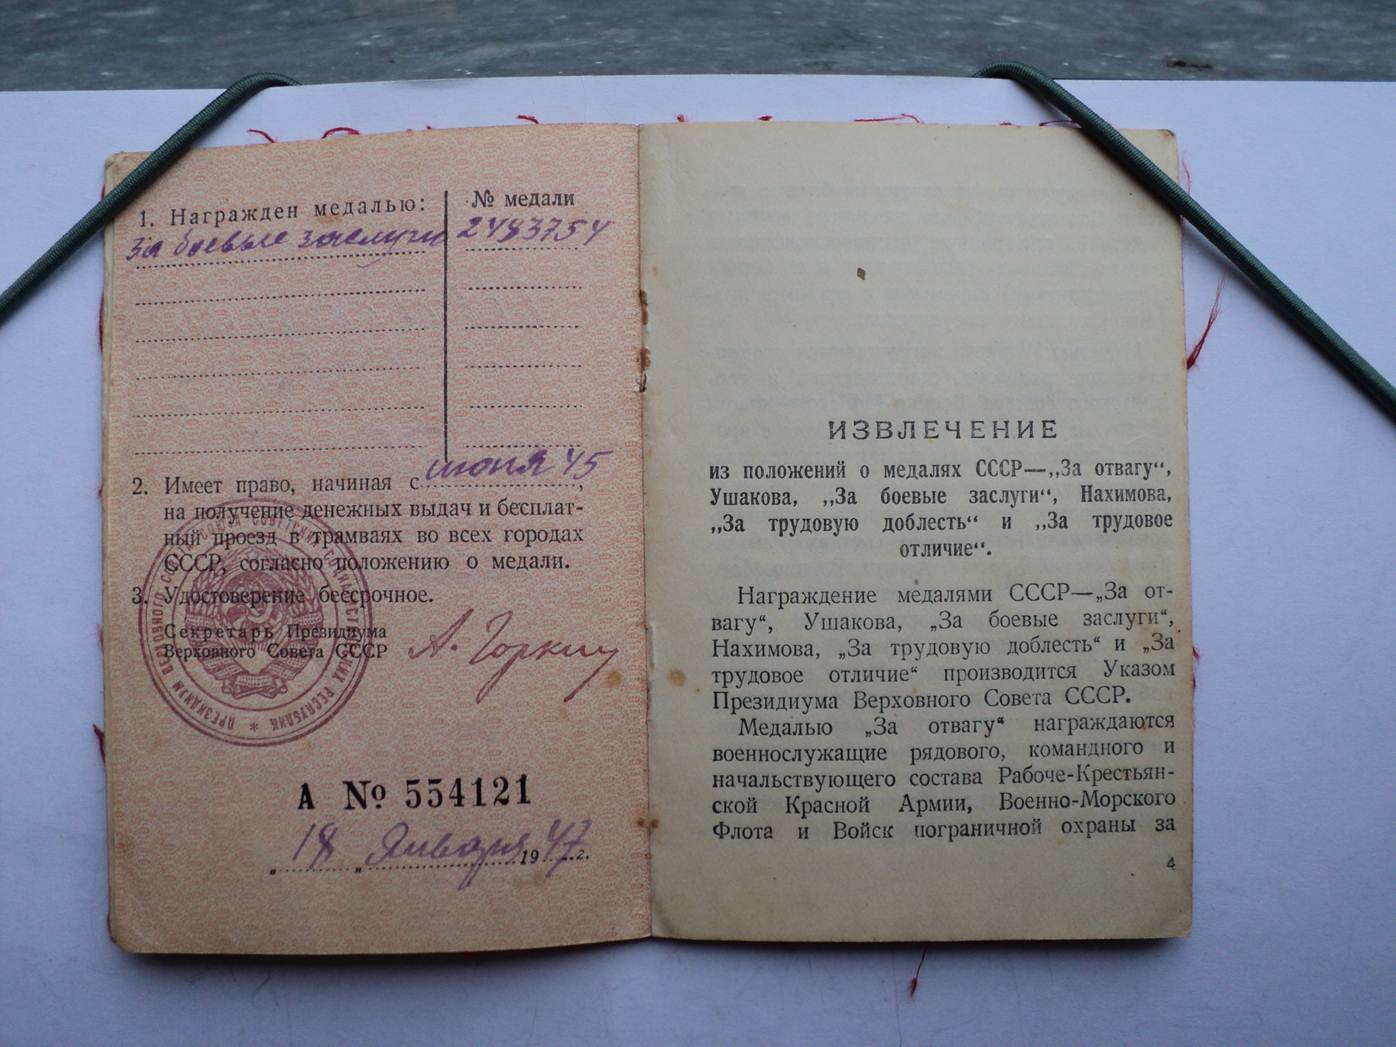 1. Награжден медалью:
№ медали
За боевые заслуги 2483754
2. Имеет право, начиная с июня 45,
на получение денежных выдач и бесплат-
ный проезд в трамваях во всех городах
СССР, согласно положению о медали.
3. Удостоверение бессрочное.
Секретарь Президиума
Верховного Совета СССР
А. Горкин
ПРЕЗИДИУМ ВЕРХОВНОГО СОВЕТА СОЮЗА СОВЕТСКИХ СОЦИАЛИСТИЧЕСКИХ РЕСПУБЛИК
А № 554121
„18„ Января 1947 г.
ИЗВЛЕЧЕНИЕ
из положений о медалях СССР—„За отвагу“,
Ушакова, „За боевые заслуги“, Нахимова,
„За трудовую доблесть“ и „За трудовое
отличие“.
Награждение медалями СССР—„За от-
вагу“, Ушакова, „За боевые заслуги“,
Нахимова, „За трудовую доблесть“ и „За
трудовое отличие“ производится Указом
Президиума Верховного Совета СССР.
Медалью „За отвагу“ награждаются
военнослужащие рядового, командного и
начальствующего состава Рабоче-Крестьян-
ской Красной Армии, Военно-Морского
Флота и Войск пограничной охраны за
4